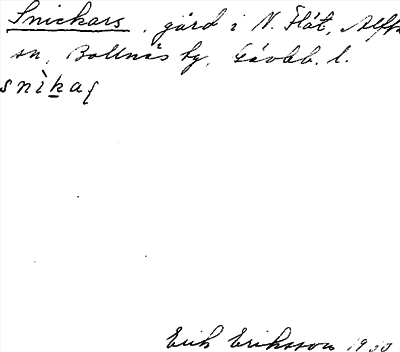 Snickars, gård i N. Flät, Alfta
sn, Bollnäs tg, Gävleb. l.
snìkaʂ
Erik Eriksson 1930